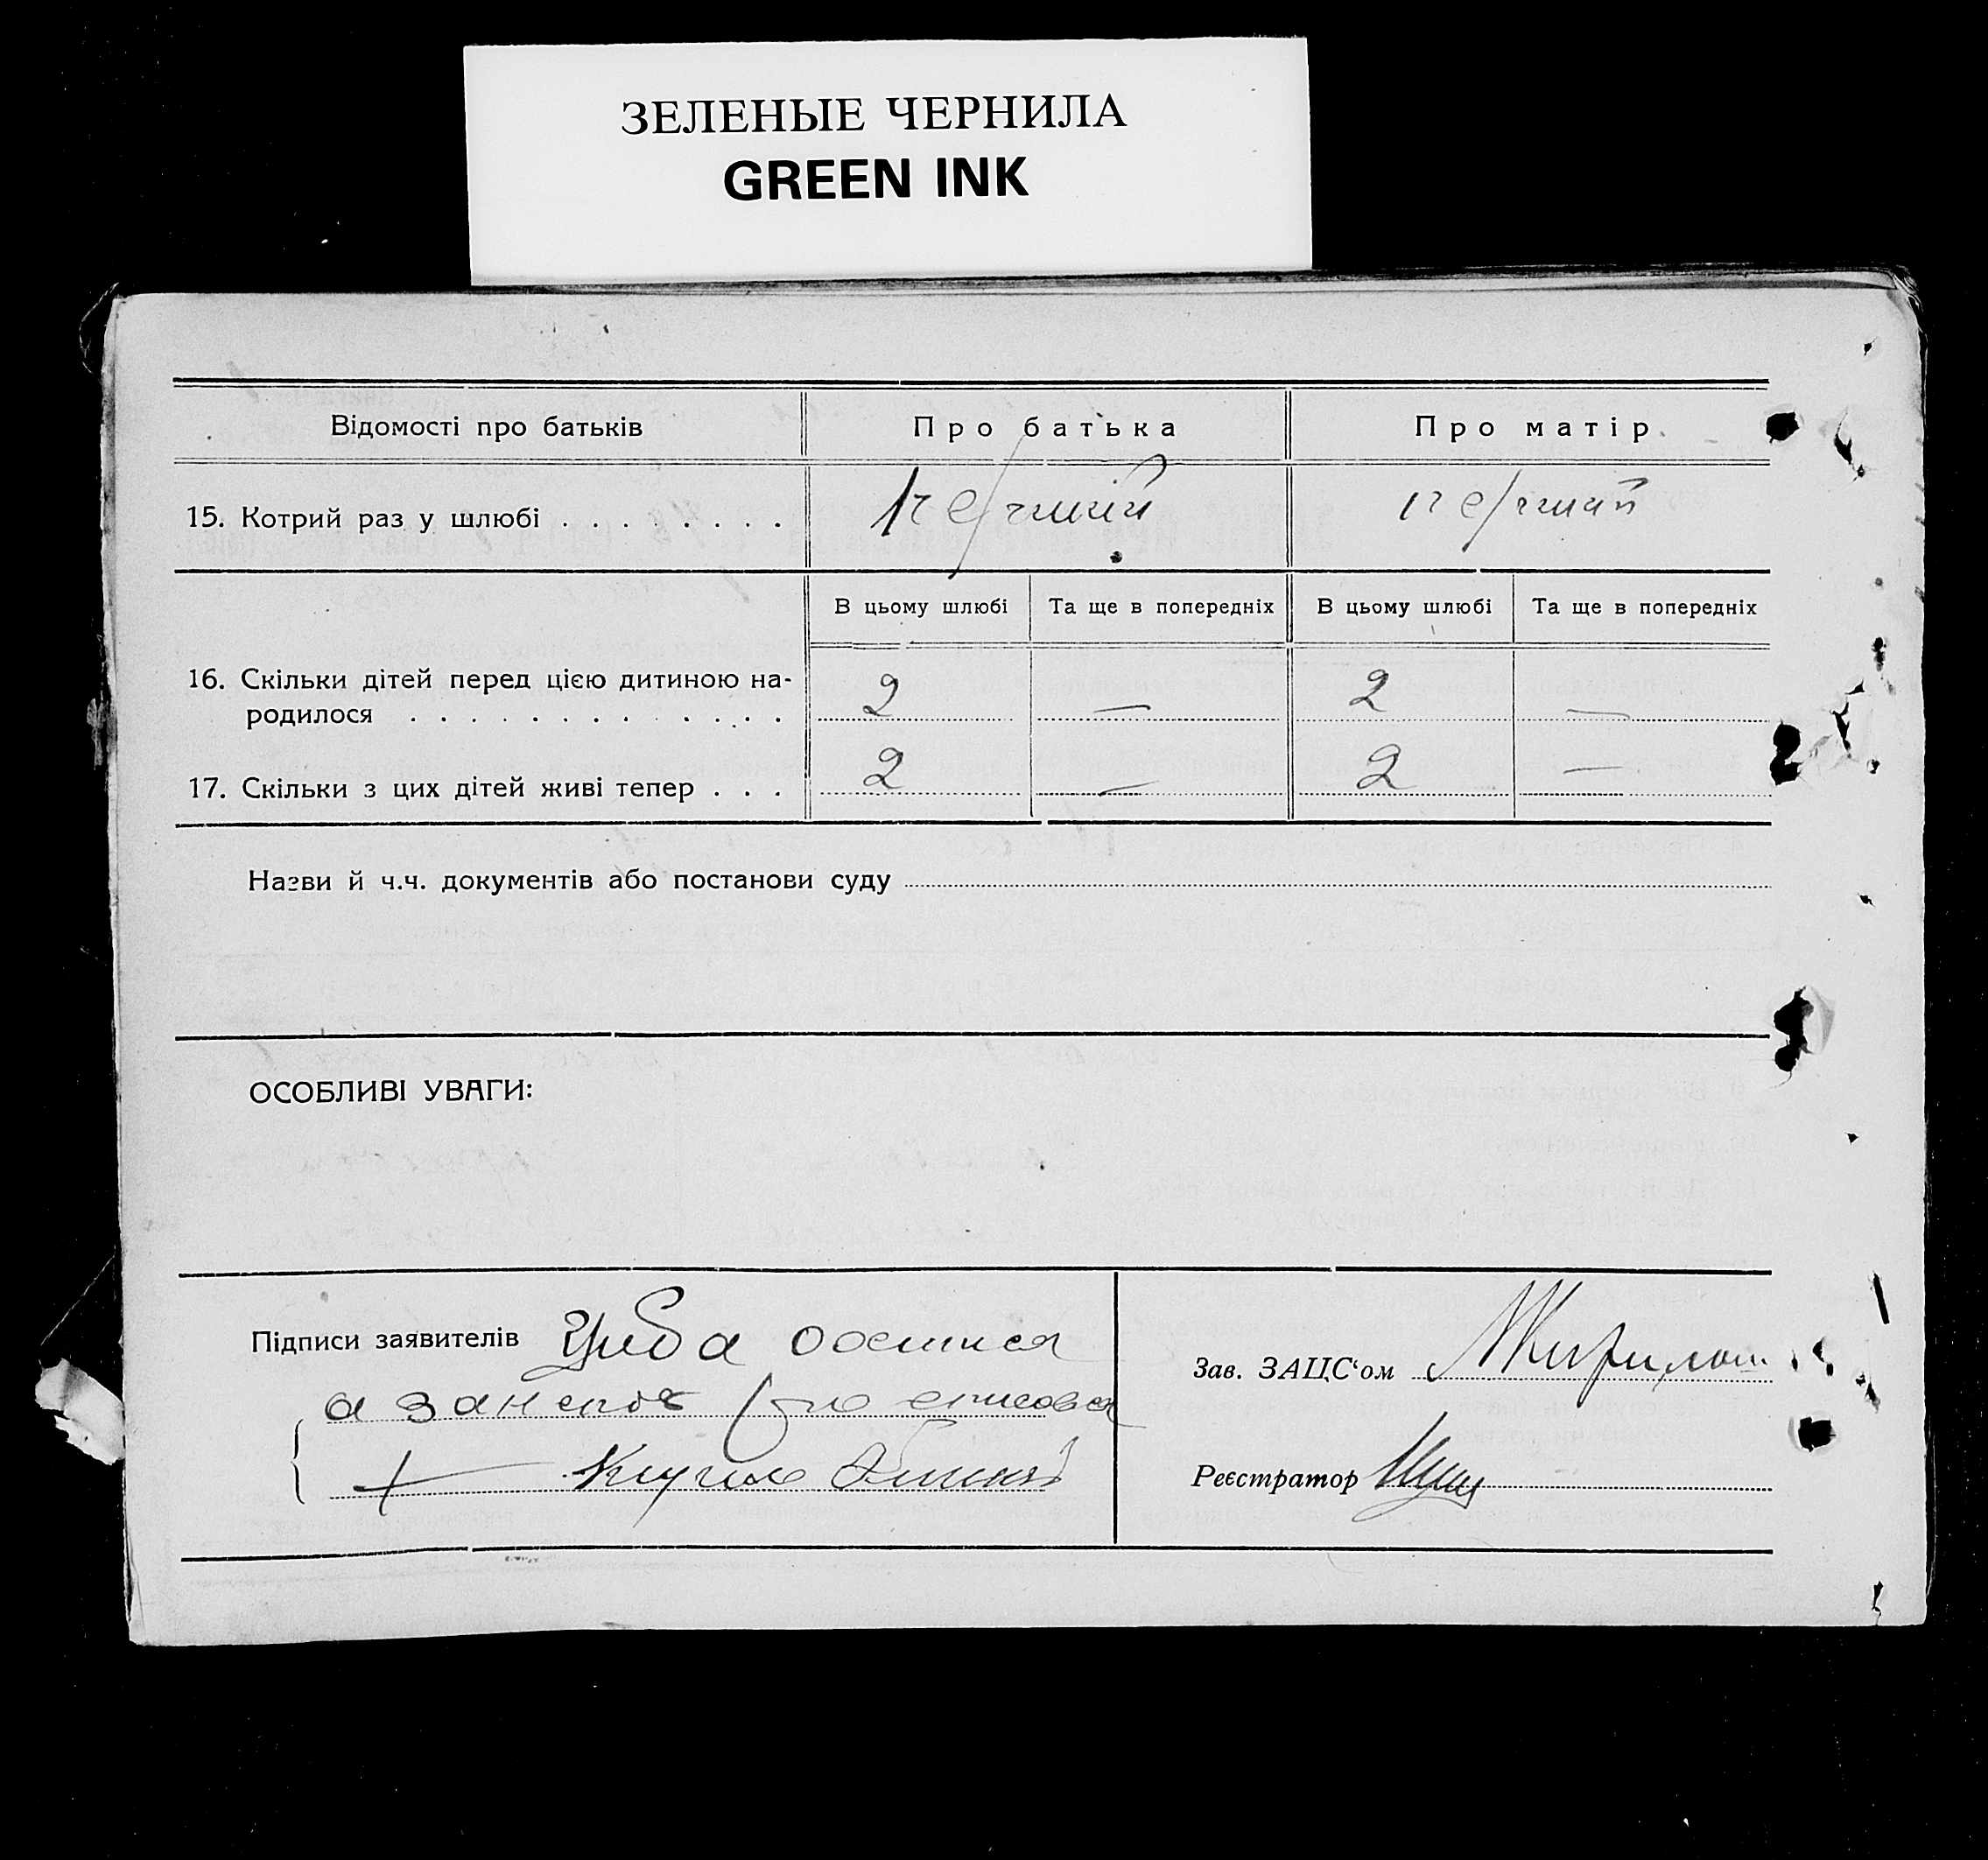 ЗЕЛЕНЫЕ ЧЕРНИЛА
GREEN INK
Відомості про батьків
Про батька
Про матір
15. Котрий раз у шлюбі . . . . . . . .
перший
перший
В цьому шлюбі
Та ще в попередніх
В цьому шлюбі
Та ще в попередніх
16. Скільки дітей перед цією дитиною на-
родилося . . . . . . . . . . . . .
2 — 2 —
17. Скільки з цих дітей живі тепер . . .
2 — 2 —
Назви й ч.ч. документів або постанови суду
ОСОБЛИВІ УВАГИ:
Підписи заявителів
а
Зав. ЗАЦС‘ом
Реєстратор